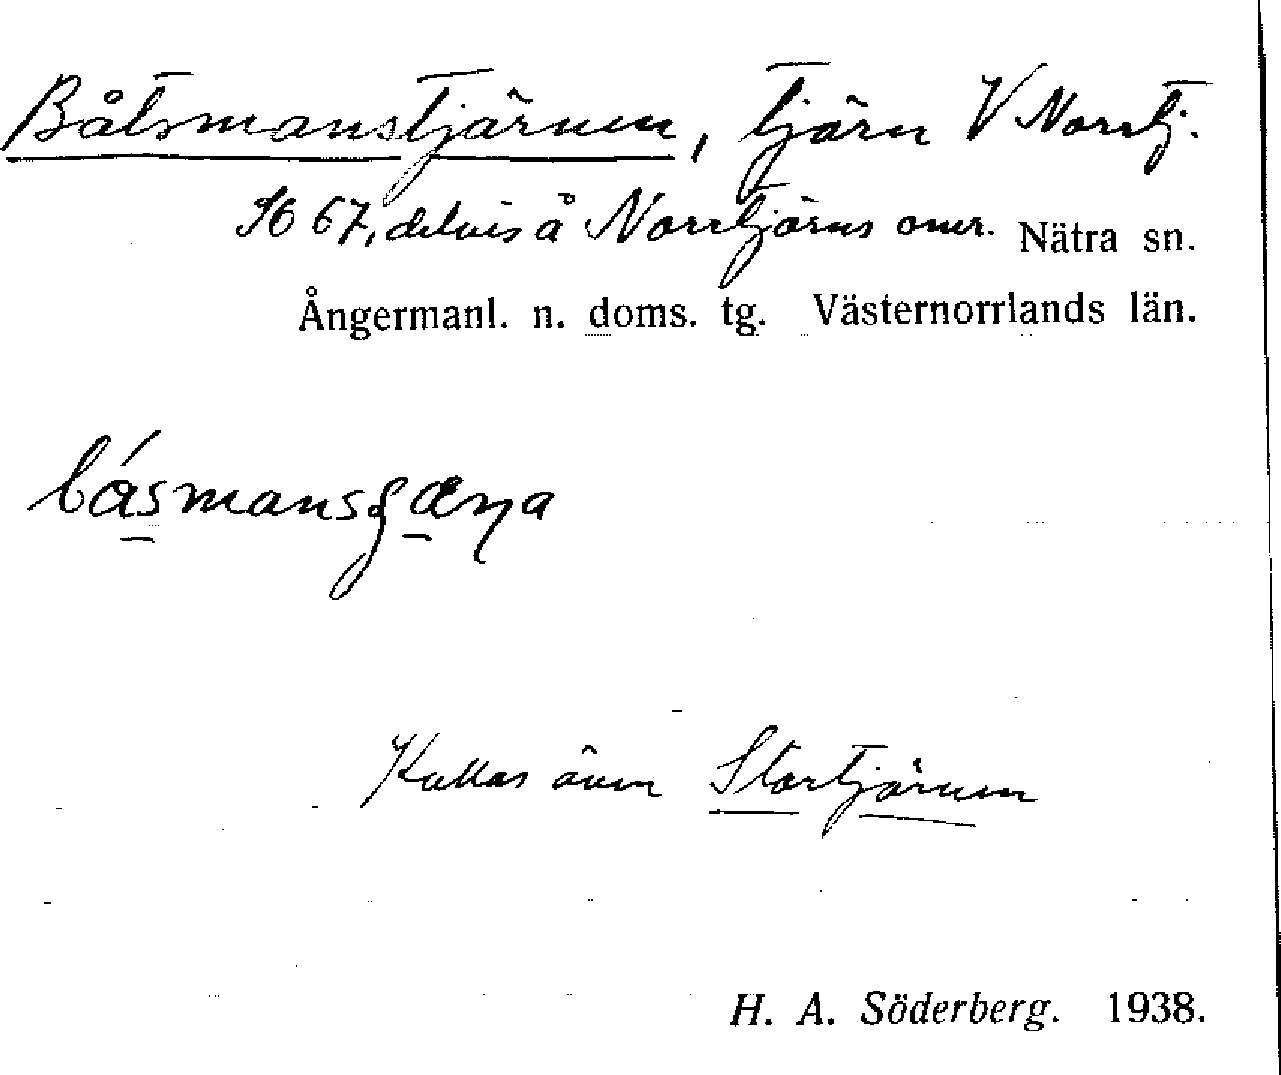 Båtsmanstjärnen, tjärn V Norrtj.
S6 67, delvis å Norrtjärns omr. Nätra sn.
Ångermanl. n. doms. tg. Västernorrlands län.
Kallas även Stortjärnen
H. A. Söderberg. 1938.